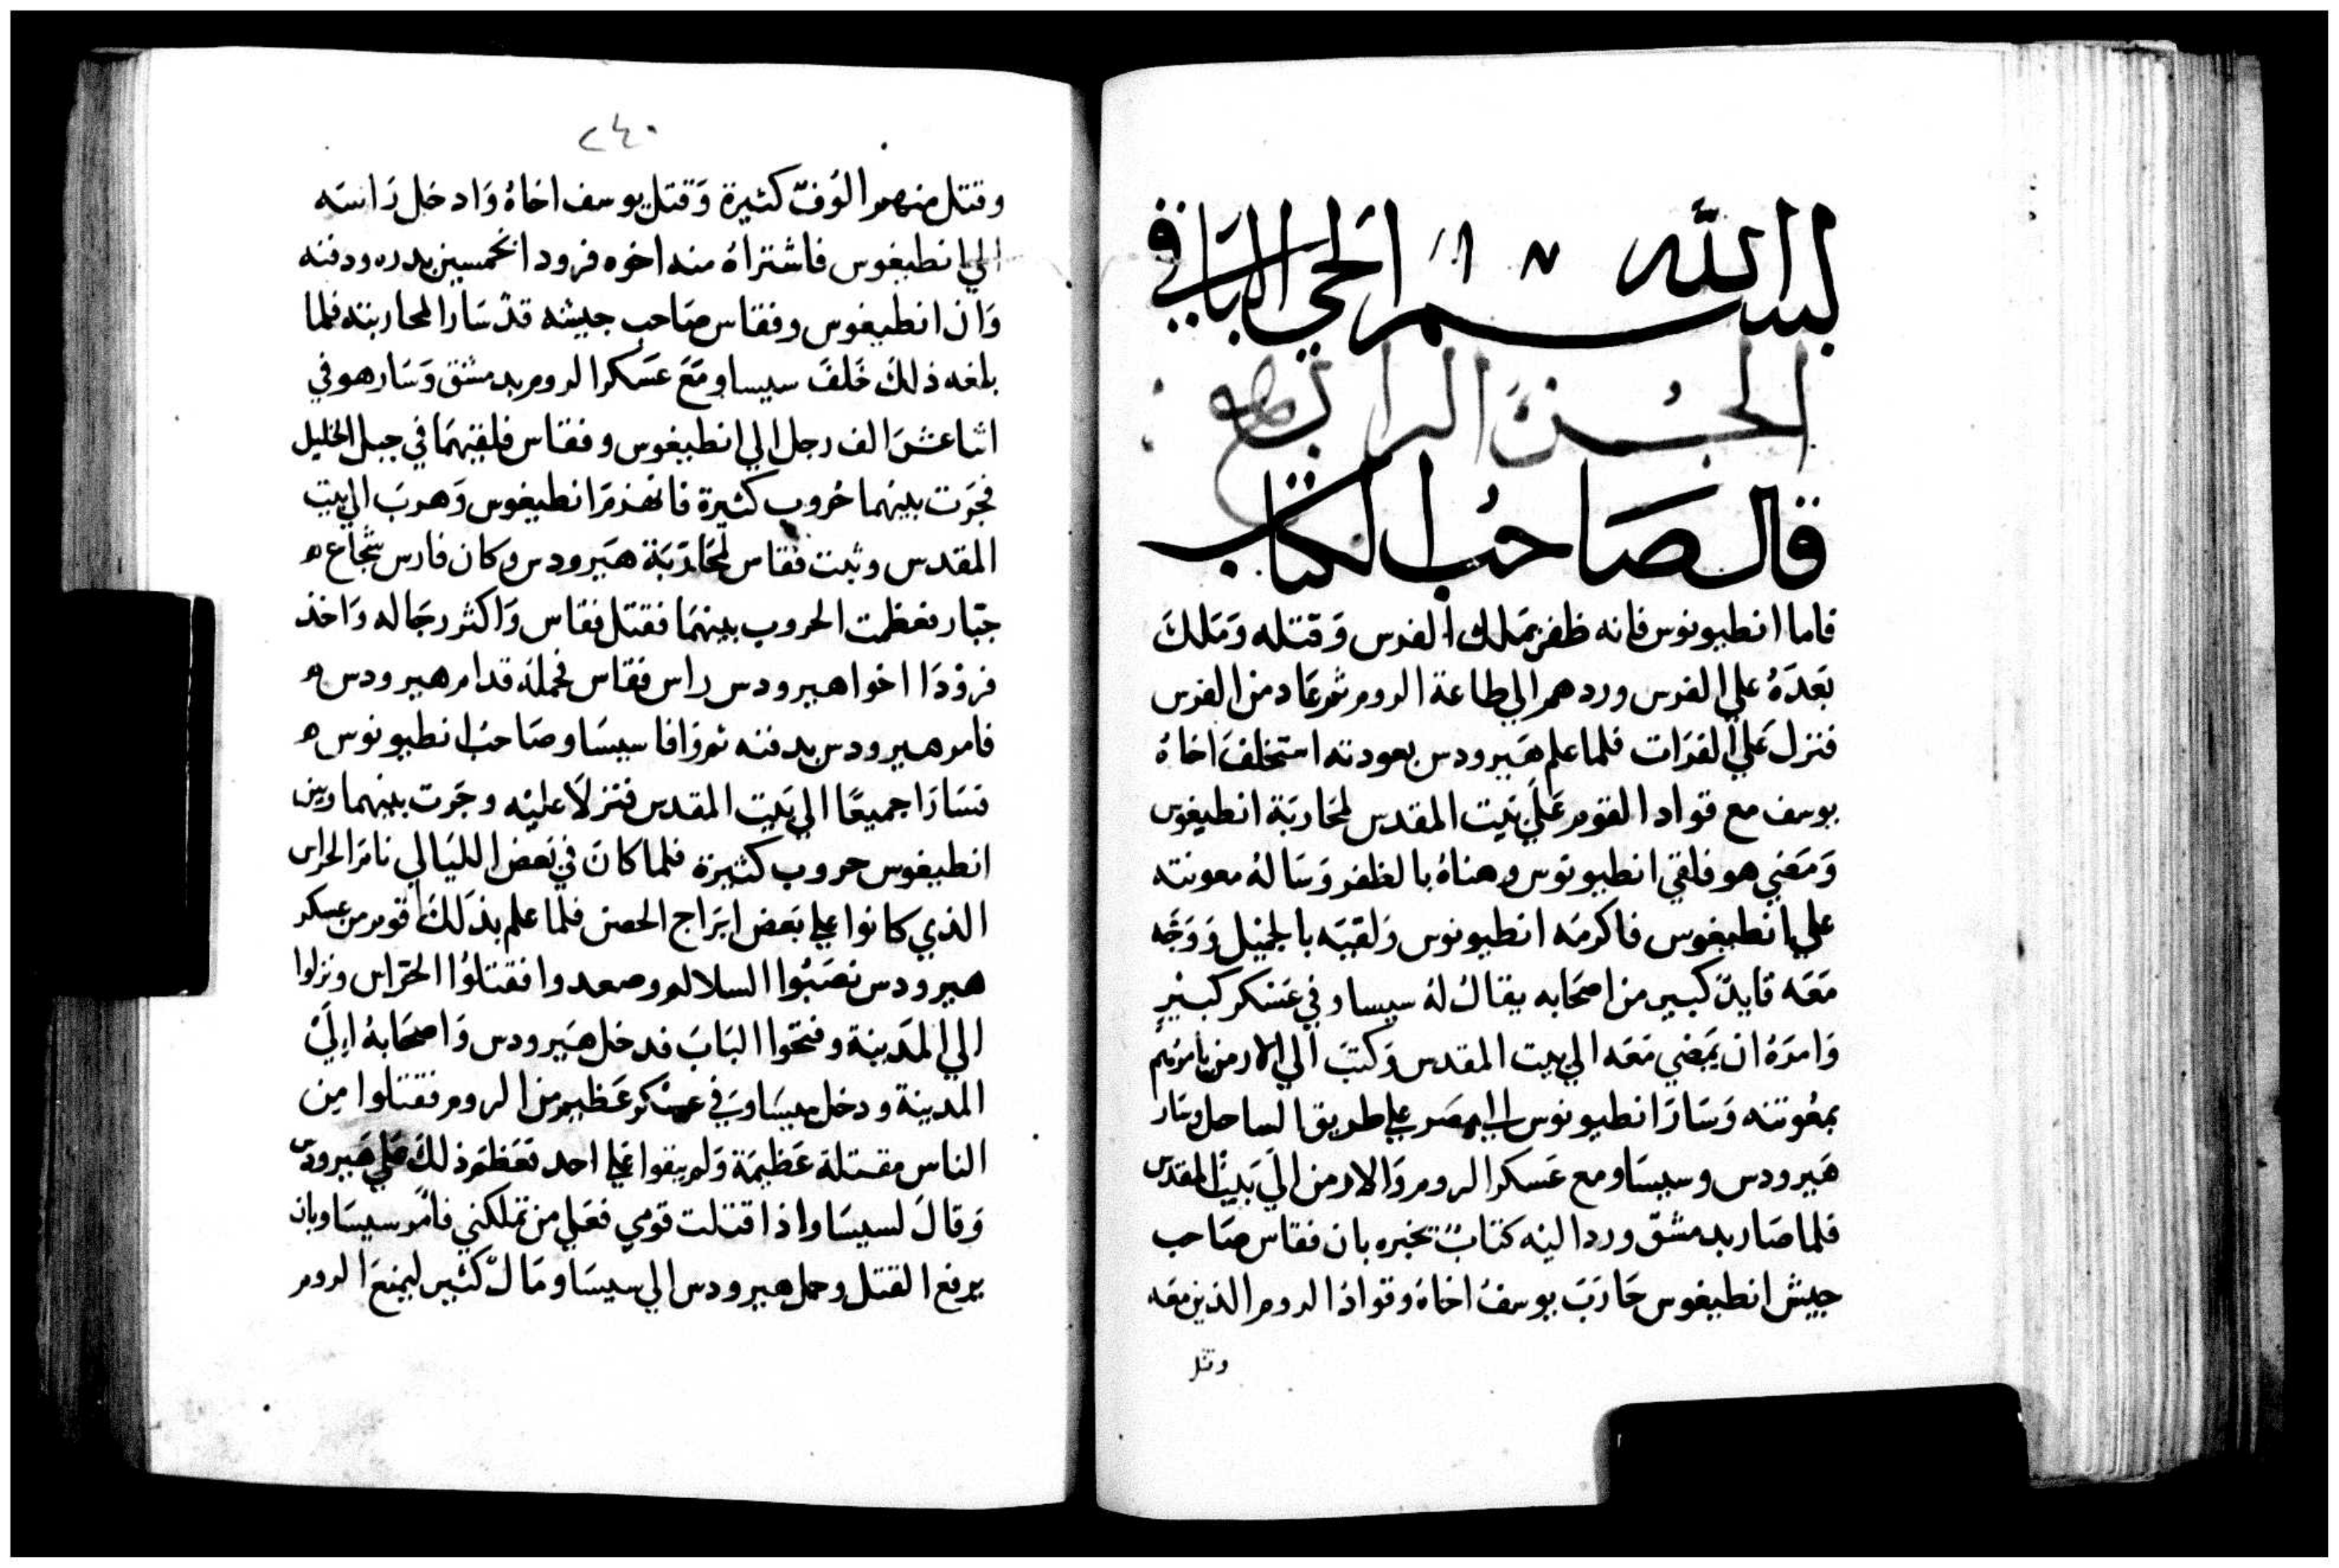 بسم الله الحي الباقي
الجزء الرابع
قال صَاحبُ الكتاب
فاما انطيونوس فانه ظفر بمَلك الفرس وَقتله وَمَلكَ
بَعدَهُ علي الفرس وردهم الي طاعة الروم ثم عَاد من الفرس
فنزل عَلي الفرَات فلما علم هَيرودس بعودته استخلفَ اخاهُ
يوسف مع قواد القوم عَلي بَيت المقدس لمحَاربَة انطيغوس
وَمَضي هو فلقي انطيونوس وهناهُ بالظفر وَسَالهُ معونته
علي انطيغوس فاكرمَه انطيونوس وَلقيَه بالجميْل وَوَجَّه
مَعَه قايدً كبير من اصحَابه يقالُ لهُ سيساو في عَسْكر كبيْرٍ
وَامرَهُ ان يمَضي مَعَه الي بيت المقدس وَكتبَ الي الارمن يامرَهم
بمعُونته وَسَارَ انطيونوس الي مصَر علي طريق الساحل وسَار
هَيرودس وسيسَاو مع عَسكر الروم وَالارمن الَي بَيت المقدس
فلما صَار بدمشقَ ورد اليْه كتابً تخبره بان فقاس صَاحب
جيش انطيغوس حَارَبَ يوسفُ اخاهُ وقوادُ الروم الذين معَه
وقتل
٢٤٠
وقتل منهم الوُفّ كثيرة وَقتل يوسف اخاهُ وَادخل رَاسَه
الي انطيغوس فاشتراهُ منه اخوه فرودا بخمسين بدره ودفنه
وَان انطيغوس وفقاس صَاحب جيشه قدْ سَارا لمحاربته فلما
بلغه ذلكَ خَلفَ سيساو مَعَ عَسَكر الروم بدمشق وَسَار هو في
اثنا عشرَ الف رجل الي انطيغوس وفقاس فلقيهمَا في جبل الخليل
فجَرَت بينهما حُروب كثيرة فانهذمَ انطيغوس وَهربَ الي بيت
المقدس وثبت فقاس لمحَارَبَة هيَرودس وكان فارس شجَاع ه
جبَّار فعظمت الحروب بينهمَا فقتل فقاس وَاكثر رجَاله وَاخذ
فروْدَا اخوا هيرودس راس فقاس فحمَلهُ قدام هيرودس ه
فامر هيرودس بدفنه ثم وَافا سيسَاو صَاحبُ انطيونوس ه
فسَارَا جميعًا الي بَيت المقدس فنزلاَ عليْه وجَرت بينهما وبين
انطيغوس حروب كثيرة فلما كانَ في بَعض الليَالي نامَ الحراس
الذي كانوا علي بَعض ابرَاج الحصن فلما علم بذلَكَ قوم من عسكر
هيرودس نصَبُوا السلالم وصعدوا فقتلوُا الحرّاس ونزلوا
الي المَدينة وفتحَوا البَابَ فدخل هَيرودس وَاصحَابهُ إلَيْ
المدينة ودخل سيسَاو في عسْكر عَظيم من الروم فقتلوا مِن
الناس مقتلة عَظيمَة وَلم يبقوا عَلي احد فعَظمَ ذلكَ عَلي هَيرودس
وَقالَ لسيسَاو اذا قتلت قومي فعَلي من تملكني فأمرَ سيسَاو بان
يرفع القتل وحمل هيرودس الي سيسَاو مَالً كثير ليمنعَ الروم